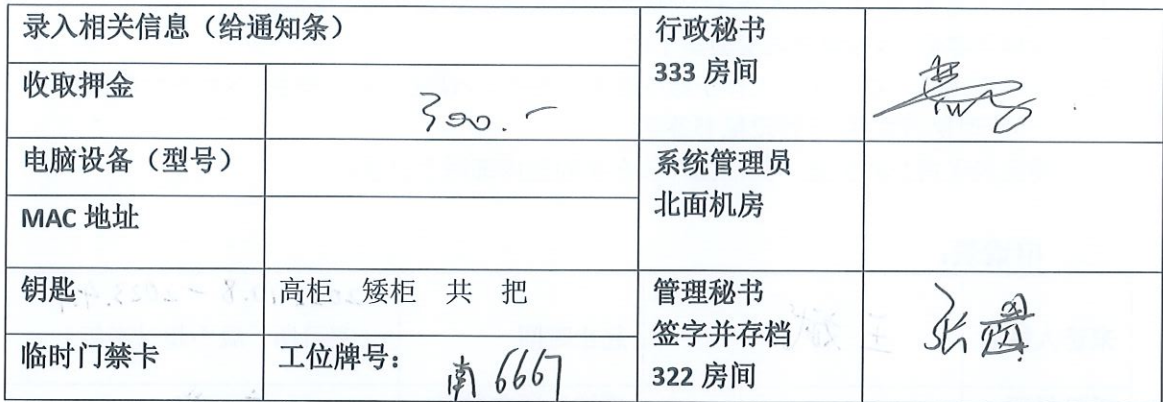 录入相关信息（给通知条）
行政秘书
333 房间
收取押金
300.-
电脑设备（型号）
系统管理员
北面机房
MAC 地址
钥匙
高柜 矮柜 共 把
管理秘书
签字并存档
322 房间
张
临时门禁卡
工位牌号：
南 6667